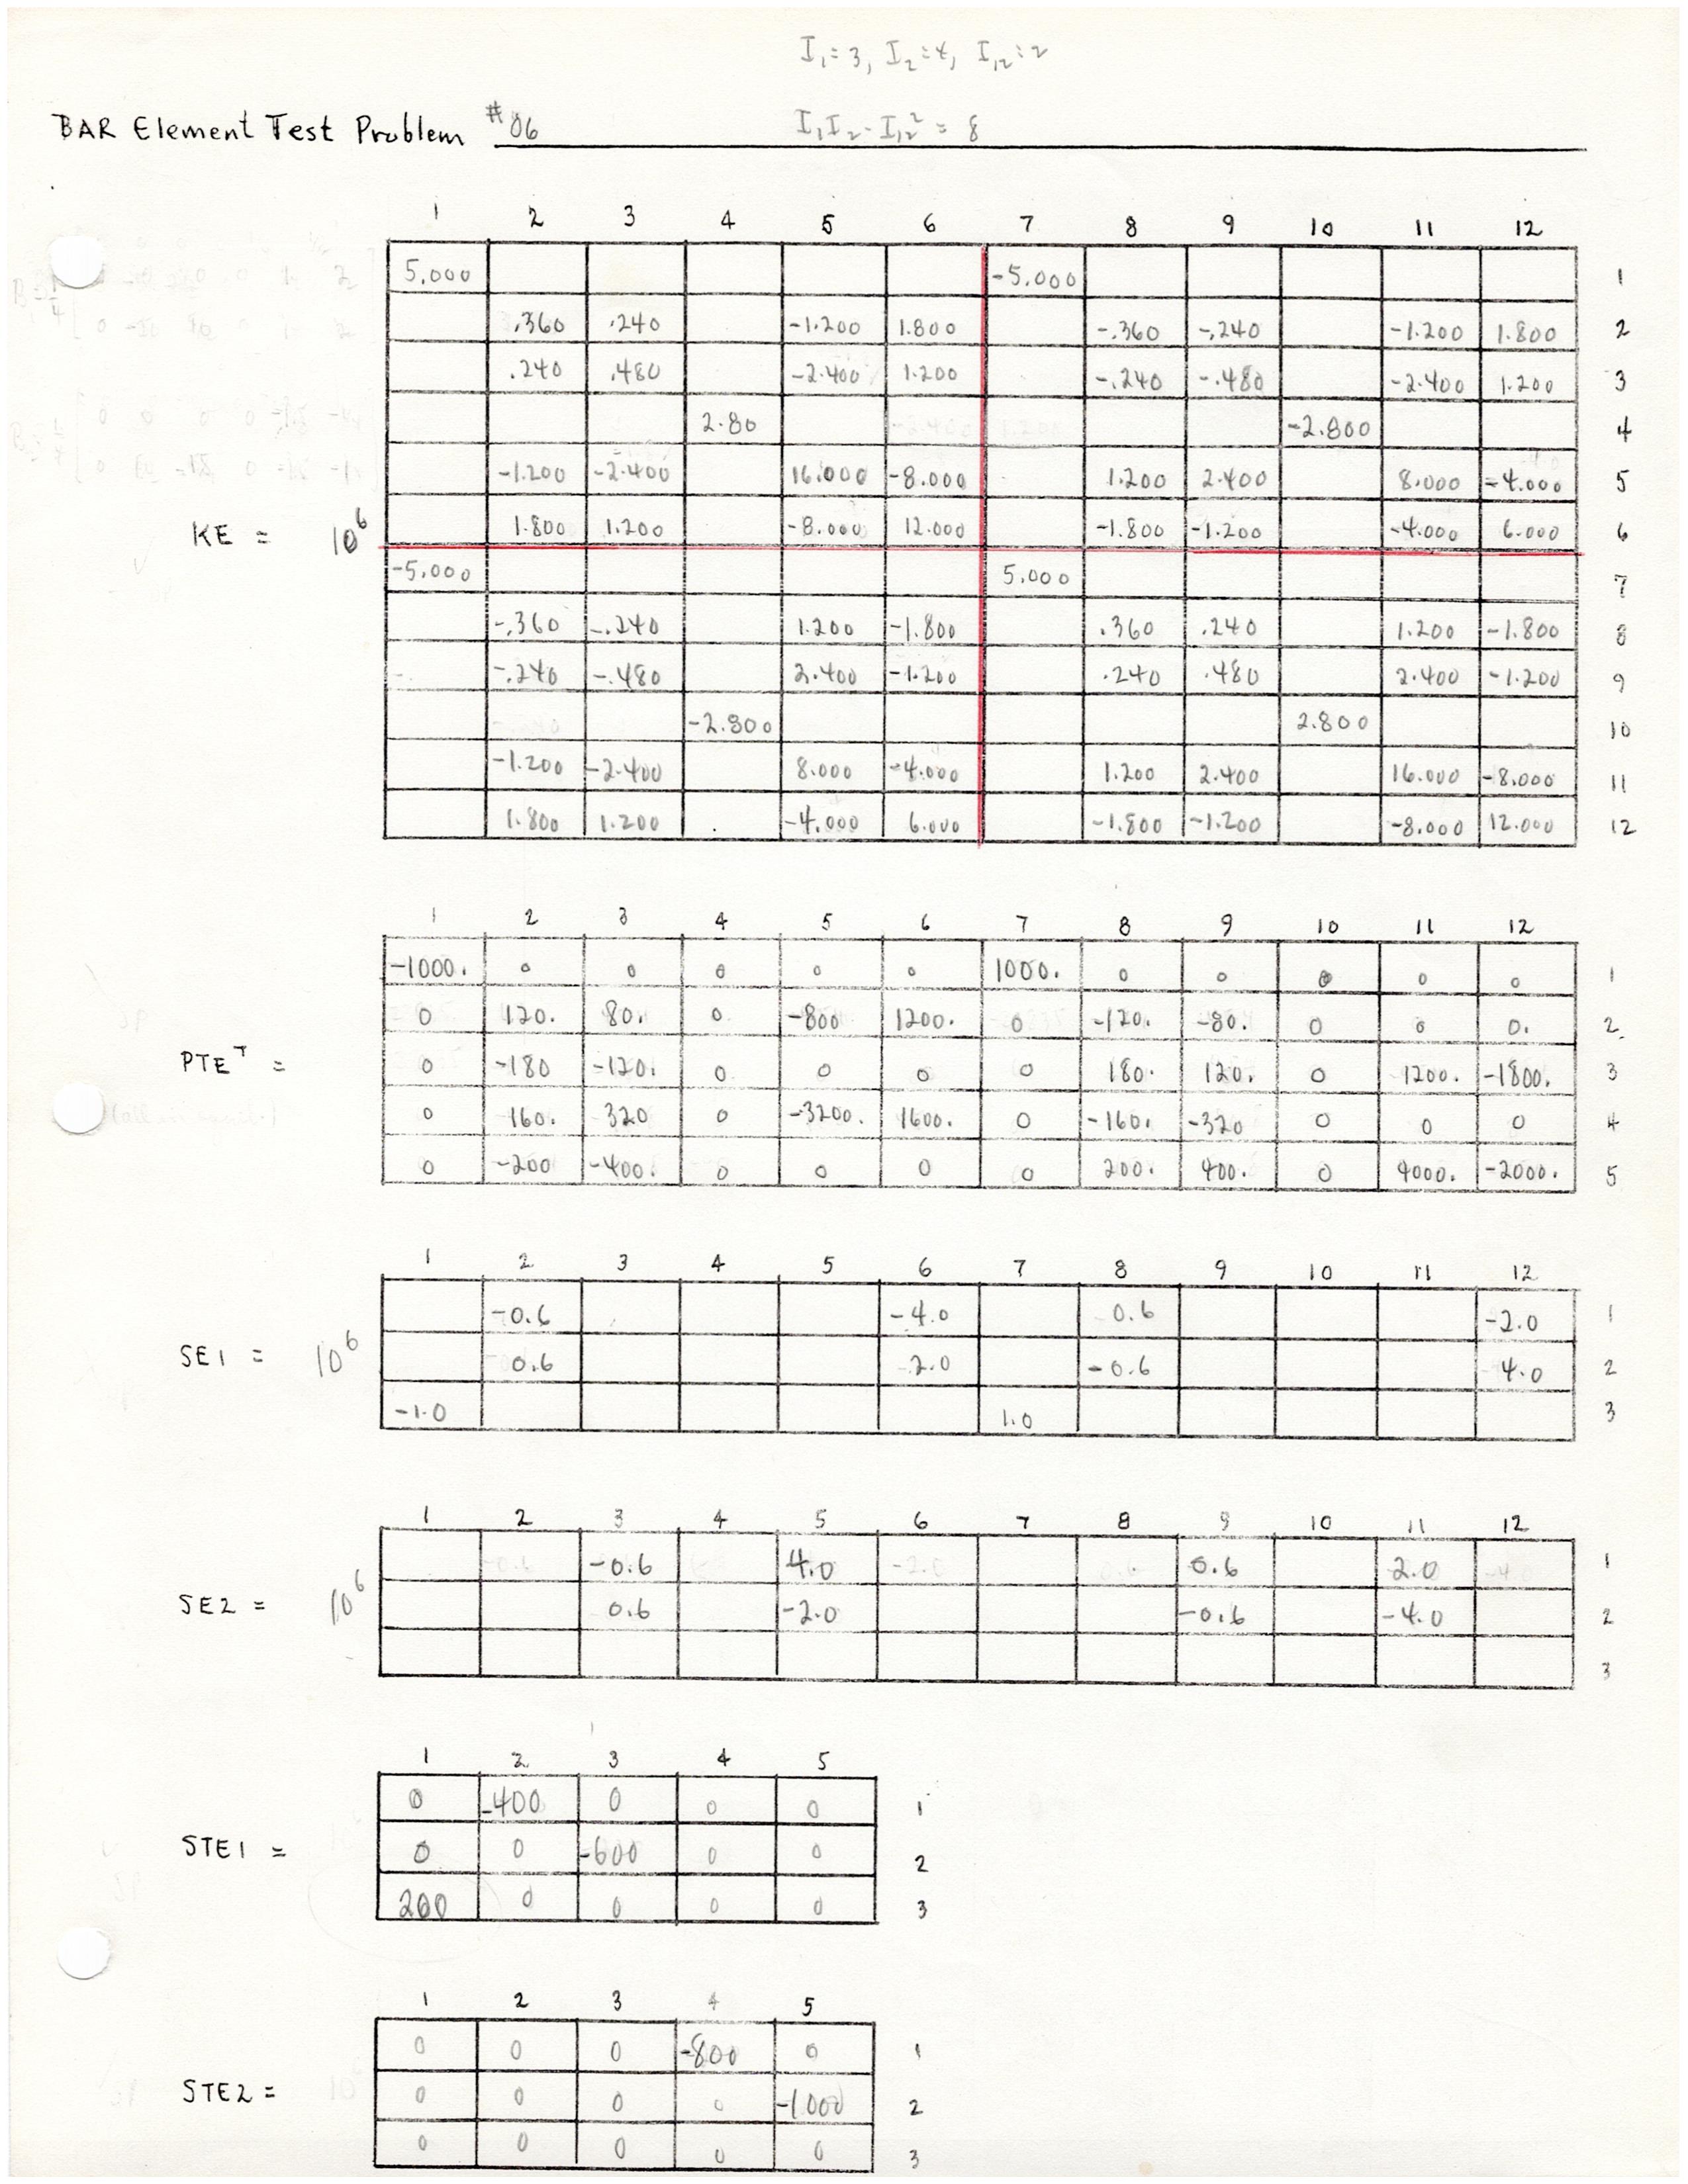 I₁=3, I₂=4, I₁₂=2
BAR Element Test Problem #06 I₁I₂-I₁₂²= 8
1 2 3 4 5 6 7 8 9 10 11 12
5.000 -5.000 1
.360 .240 -1.200 1.800 -.360 -.240 -1.200 1.800 2
.240 .480 -2.400 1.200 -.240 -.480 -2.400 1.200 3
2.80 -2.800 4
-1.200 -2.400 16.000 -8.000 1.200 2.400 8.000 -4.000 5
KE = 10⁶ 1.800 1.200 -8.000 12.000 -1.800 -1.200 -4.000 6.000 6
-5.000 5.000 7
-.360 -.240 1.200 -1.800 .360 .240 1.200 -1.800 8
-.240 -.480 2.400 -1.200 .240 .480 2.400 -1.200 9
-2.800 2.800 10
-1.200 -2.400 8.000 -4.000 1.200 2.400 16.000 -8.000 11
1.800 1.200 -4.000 6.000 -1.800 -1.200 -8.000 12.000 12
1 2 3 4 5 6 7 8 9 10 11 12
-1000. 0 0 0 0 0 1000. 0 0 0 0 0 1
0 120. 80. 0. -800 1200. 0 -120. -80. 0 0 0. 2
PTEᵀ = 0 -180 -120. 0. 0 0 0 180. 120. 0 1200. -1800. 3
0 160. 320 0 -3200. 1600. 0 -160. -320 0 0 0 4
0 -200 -400. 0 0 0 0 200. 400. 0 4000. -2000. 5
1 2 3 4 5 6 7 8 9 10 11 12
-0.6 -4.0 0.6 -2.0 1
SE1 = 10⁶ 0.6 2.0 -0.6 4.0 2
-1.0 1.0 3
1 2 3 4 5 6 7 8 9 10 11 12
-0.6 4.0 0.6 2.0 1
SE2 = 10⁶ 0.6 -2.0 -0.6 -4.0 2
3
1 2 3 4 5
0 -400 0 0 0 1
STE1 = 0 0 -600 0 0 2
200 0 0 0 0 3
1 2 3 4 5
0 0 0 -800 0 1
STE2 = 0 0 0 0 -1000 2
0 0 0 0 0 3